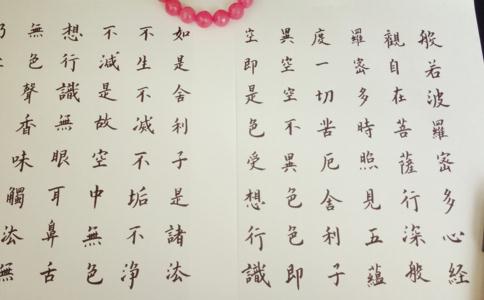 般若波羅密多心經
觀自在菩薩行深般
羅密多時照見五蘊
度一切苦厄舍利子
異空空不異色色即
空即是色受想行識
如是舍利子是諸法
不生不滅不垢不淨
不減是故空中無色
想行識無眼耳鼻舌
無色聲香味觸法無
乃